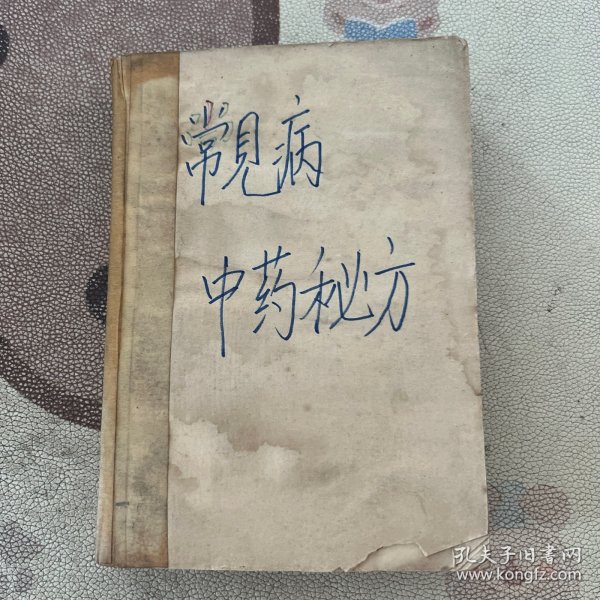 常見病
中药秘方
孔夫子旧书网
www.kongfz.com